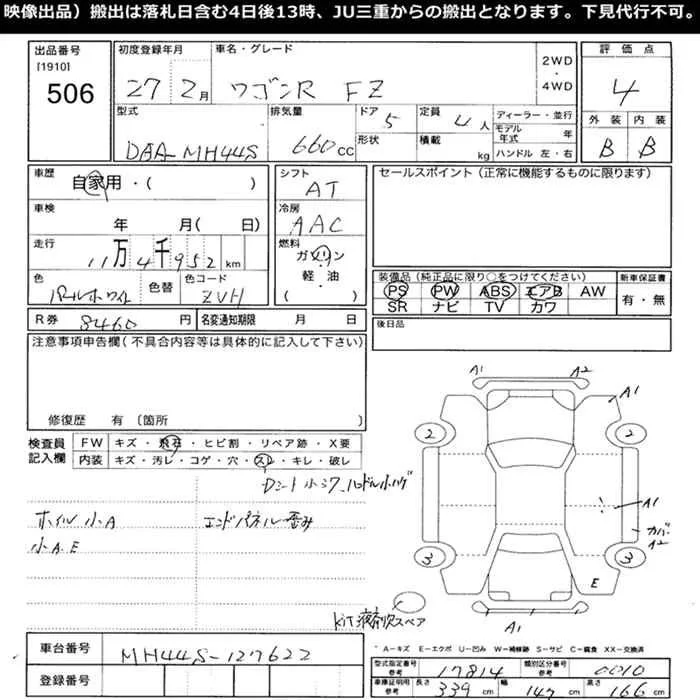 映像出品）搬出は落札日含む4日後13時、JU三重からの搬出となります。下見代行不可。
出品番号
[1910]
506
初度登録年月
27 2月
車名・グレード
ワゴンR FZ
2WD
・
4WD
評価点
4
外装 内装
B B
型式
DAA-MH44S
排気量
660cc
ドア
5
形状
定員
4人
積載
kg
ディーラー・並行
モデル年式 年
ハンドル 左・右
車歴
自家用・( )
車検
年 月( 日)
走行
11万4千952km
色
パールホワイト
色替
色コード
ZVH
シフト
AT
冷房
AAC
燃料
ガソリン
・
軽・油
( )
セールスポイント（正常に機能するものに限ります）
装備品（純正品に限り○をつけてください）
PS PW ABS エアB AW
SR ナビ TV カワ
新車保証書
有・無
後日品
R券 8460円
名変通知期限 月 日
注意事項申告欄（不具合内容等は具体的に記入して下さい）
修復歴 有〔箇所 〕
検査員記入欄
FW キズ・飛石・ヒビ割・リペア跡・X要
内装 キズ・汚レ・コゲ・穴・スレ・キレ・破レ
Dシート小スレ ハンドル小ハゲ
ホイル小A
小A.E
エンドパネル歪み
Kit 液欠
スペア
A1 A2
A1
2 2
A1
カバー
A2
3 3
E
A1
A－キズ E－エクボ U－凹み W－補修跡 S－サビ C－腐食 XX－交換済
車台番号
MH44S-127622
登録番号
型式指定番号
参考
17814
類別区分番号
参考
0010
車庫証明用
参考
長さ 339cm 幅 147cm 高さ 166cm